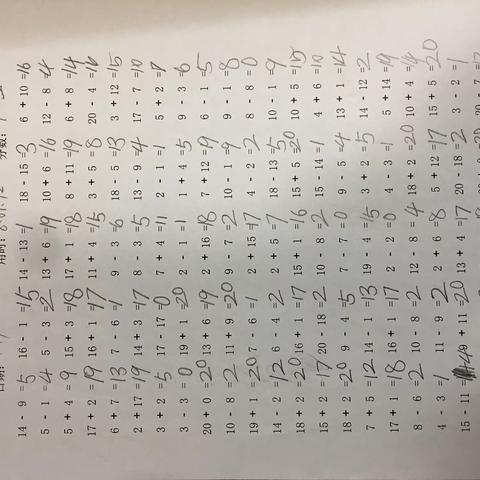 用时: 8:01.12 分数:
14 - 9 =5 16 - 1 =15 14 - 13 =1 18 - 15 =3 6 + 10 =16
5 - 1 =4 5 - 3 =2 13 + 6 =19 10 + 6 =16 12 - 8 =4
5 + 4 =9 15 + 3 =18 17 + 1 =18 8 + 11 =19 6 + 8 =14
17 + 2 =19 16 + 1 =17 11 + 4 =15 3 + 5 =8 20 - 4 =16
6 + 7 =13 7 - 6 =1 9 - 3 =6 18 - 5 =13 3 + 12 =15
2 + 17 =19 14 + 3 =17 8 - 3 =5 13 - 9 =4 17 - 7 =10
3 + 2 =5 17 - 17 =0 7 + 4 =11 2 - 1 =1 5 + 2 =7
3 - 3 =0 19 + 1 =20 2 - 1 =1 1 + 4 =5 9 - 3 =6
20 + 0 =20 13 + 6 =19 2 + 16 =18 7 + 12 =19 6 - 1 =5
10 - 8 =2 11 + 9 =20 9 - 7 =2 10 - 1 =9 9 - 1 =8
19 + 1 =20 7 - 6 =1 2 + 15 =17 4 - 2 =2 8 - 8 =0
14 - 2 =12 6 - 4 =2 2 + 5 =7 18 - 13 =5 10 - 1 =9
18 + 2 =20 16 + 1 =17 15 + 1 =16 15 + 5 =20 10 + 5 =15
15 + 2 =17 20 - 18 =2 10 - 8 =2 15 - 14 =1 4 + 6 =10
18 + 2 =20 9 - 4 =5 7 - 7 =0 9 - 5 =4 13 + 1 =14
7 + 5 =12 14 - 1 =13 19 - 4 =15 3 + 2 =5 14 - 12 =2
17 + 1 =18 16 + 1 =17 2 - 2 =0 4 - 3 =1 5 + 14 =19
8 - 6 =2 10 - 8 =2 12 - 8 =4 18 + 2 =20 10 + 4 =14
4 - 3 =1 11 - 9 =2 2 + 6 =8 5 + 12 =17 15 + 5 =20
15 - 11 =4 9 + 11 =20 13 + 4 =17 20 - 18 =2 3 - 2 =1